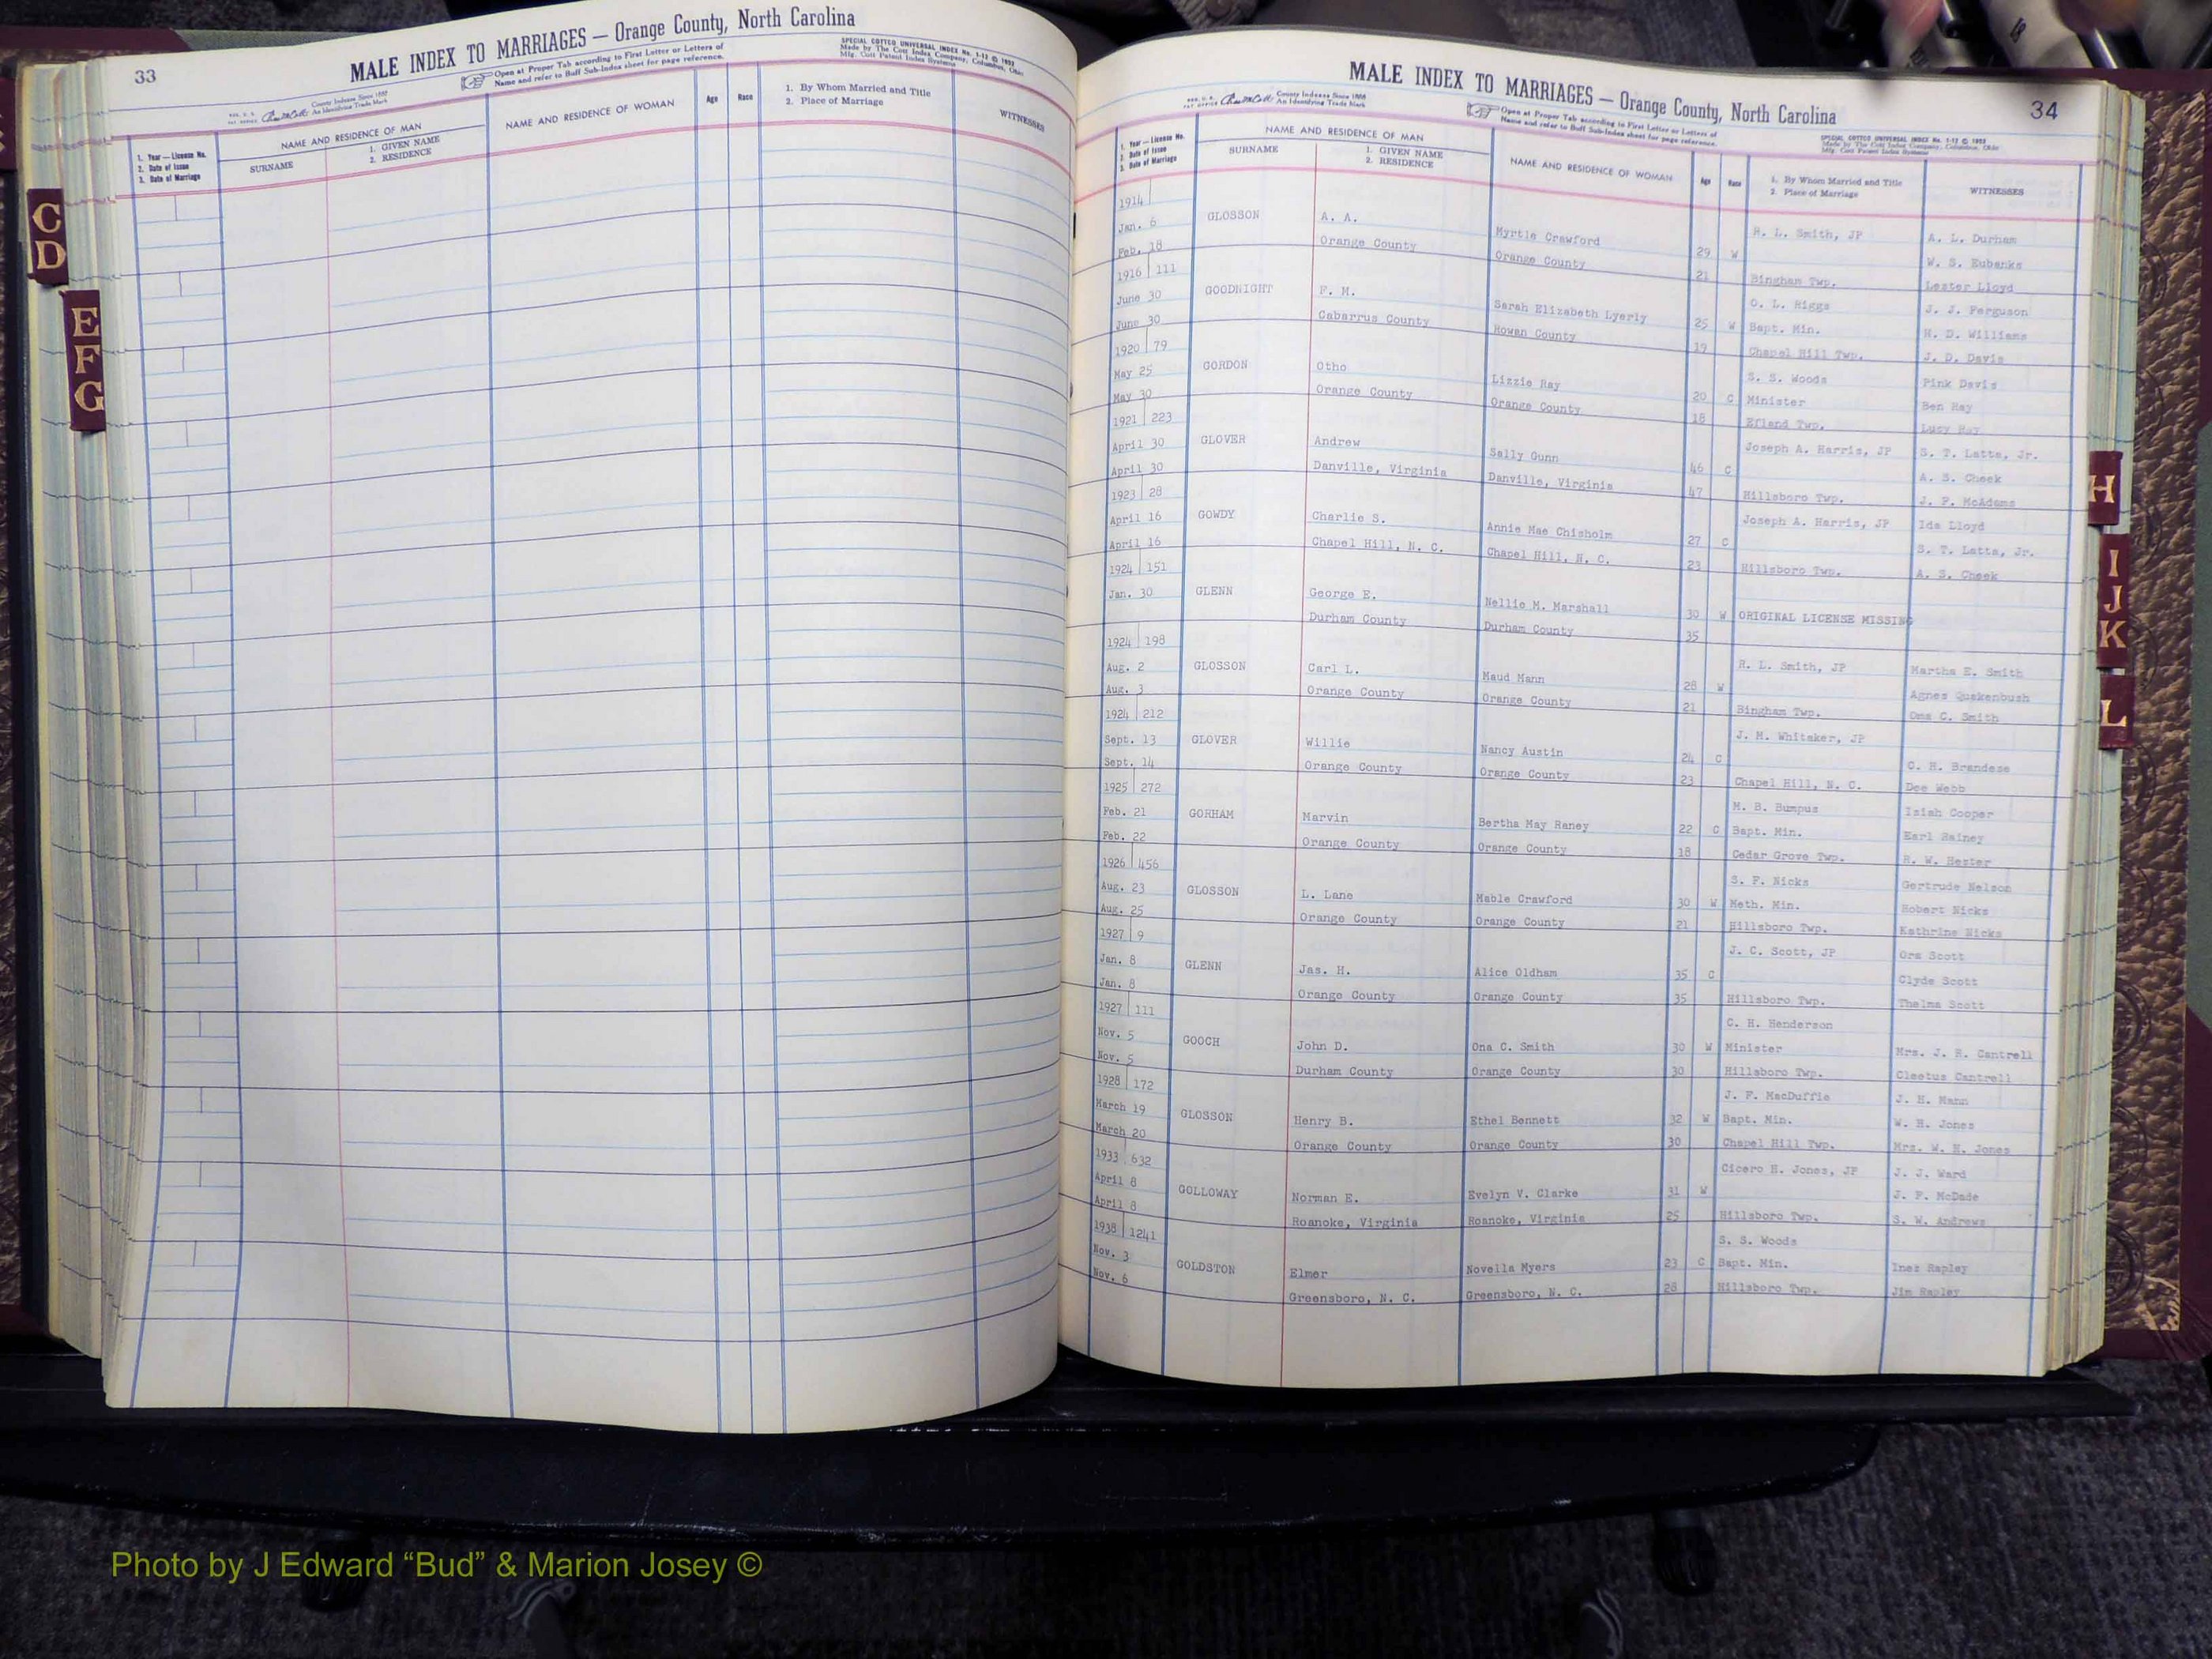 33
MALE INDEX TO MARRIAGES — Orange County, North Carolina
Open at Proper Tab according to First Letter or Letters of
Name and refer to Buff Sub-Index sheet for page reference.
SPECIAL COTTCO UNIVERSAL INDEX No. 1-12 © 1952
Made by The Cott Index Company, Columbus, Ohio
Mfg. Cott Patent Index Systems
County Indexes Since 1888
An Identifying Trade Mark
1. Year — License No.
2. Date of Issue
3. Date of Marriage
NAME AND RESIDENCE OF MAN
SURNAME
1. GIVEN NAME
2. RESIDENCE
NAME AND RESIDENCE OF WOMAN
Age
Race
1. By Whom Married and Title
2. Place of Marriage
WITNESSES
C
D
E
F
G
MALE INDEX TO MARRIAGES — Orange County, North Carolina
34
County Indexes Since 1888
An Identifying Trade Mark
Open at Proper Tab according to First Letter or Letters of
Name and refer to Buff Sub-Index sheet for page reference.
SPECIAL COTTCO UNIVERSAL INDEX No. 1-12 © 1952
Made by The Cott Index Company, Columbus, Ohio
Mfg. Cott Patent Index Systems
1. Year — License No.
2. Date of Issue
3. Date of Marriage
NAME AND RESIDENCE OF MAN
SURNAME
1. GIVEN NAME
2. RESIDENCE
NAME AND RESIDENCE OF WOMAN
Age
Race
1. By Whom Married and Title
2. Place of Marriage
WITNESSES
1914 R. L. Smith, JP A. L. Durham
Jan. 6 GLOSSON A. A. Myrtle Crawford 29 W W. S. Eubanks
Feb. 18 Orange County Orange County 21 Bingham Twp. Lester Lloyd
1916 111 O. L. Riggs J. J. Ferguson
June 30 GOODNIGHT F. M. Sarah Elizabeth Lyerly 25 W Bapt. Min. H. D. Williams
June 30 Cabarrus County Rowan County 19 Chapel Hill Twp. J. D. Davis
1920 79 S. S. Woods Pink Davis
May 25 GORDON Otho Lizzie Ray 20 C Minister Ben Ray
May 30 Orange County Orange County 18 Efland Twp. Lucy Ray
1921 223 Joseph A. Harris, JP S. T. Latta, Jr.
April 30 GLOVER Andrew Sally Gunn 46 C A. S. Cheek
April 30 Danville, Virginia Danville, Virginia 47 Hillsboro Twp. J. P. McAdams
1923 28 Joseph A. Harris, JP Ida Lloyd
April 16 GOWDY Charlie S. Annie Mae Chisholm 27 C S. T. Latta, Jr.
April 16 Chapel Hill, N. C. Chapel Hill, N. C. 23 Hillsboro Twp. A. S. Cheek
1924 151
Jan. 30 GLENN George E. Nellie M. Marshall 30 W ORIGINAL LICENSE MISSING
Durham County Durham County 35
1924 198 R. L. Smith, JP Martha E. Smith
Aug. 2 GLOSSON Carl L. Maud Mann 28 W Agnes Quakenbush
Aug. 3 Orange County Orange County 21 Bingham Twp. Oma C. Smith
1924 212 J. M. Whitaker, JP
Sept. 13 GLOVER Willie Nancy Austin 24 C C. H. Brandese
Sept. 14 Orange County Orange County 23 Chapel Hill, N. C. Dee Webb
1925 272 M. B. Bumpus Isiah Cooper
Feb. 21 GORHAM Marvin Bertha May Raney 22 C Bapt. Min. Earl Rainey
Feb. 22 Orange County Orange County 18 Cedar Grove Twp. R. W. Hester
1926 456 S. F. Nicks Gertrude Nelson
Aug. 23 GLOSSON L. Lane Mable Crawford 30 W Meth. Min. Robert Nicks
Aug. 25 Orange County Orange County 21 Hillsboro Twp. Kathrine Nicks
1927 9 J. C. Scott, JP Ora Scott
Jan. 8 GLENN Jas. H. Alice Oldham 35 C Clyde Scott
Jan. 8 Orange County Orange County 35 Hillsboro Twp. Thelma Scott
1927 111 C. H. Henderson
Nov. 5 GOOCH John D. Ona C. Smith 30 W Minister Mrs. J. R. Cantrell
Nov. 5 Durham County Orange County 30 Hillsboro Twp. Cleetus Cantrell
1928 172 J. F. MacDuffie J. H. Mann
March 19 GLOSSON Henry B. Ethel Bennett 32 W Bapt. Min. W. H. Jones
March 20 Orange County Orange County 30 Chapel Hill Twp. Mrs. W. H. Jones
1933 632 Cicero H. Jones, JP J. J. Ward
April 8 GOLLOWAY Norman E. Evelyn V. Clarke 31 W J. F. McDade
April 8 Roanoke, Virginia Roanoke, Virginia 25 Hillsboro Twp. S. W. Andrews
1938 1241 S. S. Woods
Nov. 3 GOLDSTON Elmer Novella Myers 23 C Bapt. Min. Inez Rapley
Nov. 6 Greensboro, N. C. Greensboro, N. C. 28 Hillsboro Twp. Jim Rapley
H
I
J
K
L
Photo by J Edward “Bud” & Marion Josey ©